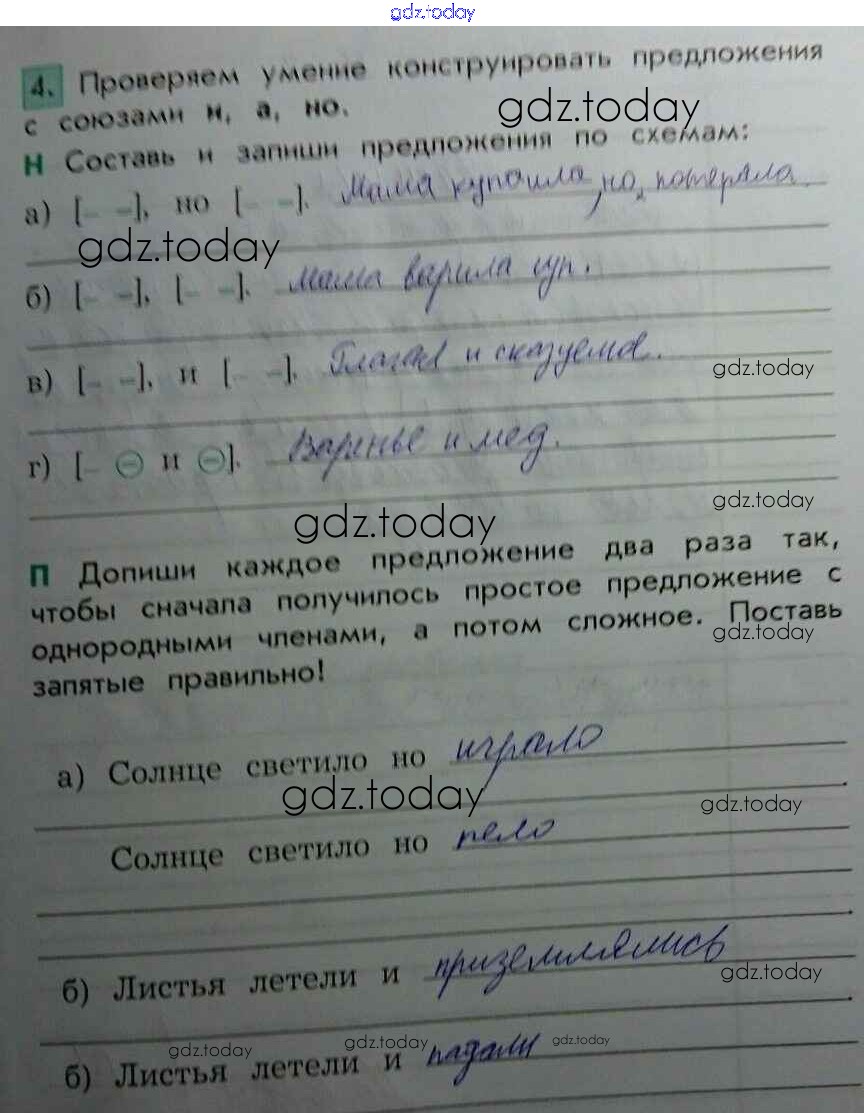 gdz.today
4. Проверяем умение конструировать предложения
с союзами и, а, но.
gdz.today
Н Составь и запиши предложения по схемам:
а) [– –], но [– –]. Мама купила, но потеряла.
gdz.today
б) [– –], [– –]. Мама варила суп.
в) [– –], и [– –]. Глагол и сказуемое.
gdz.today
г) [– ⊖ и ⊖]. Варенье и мёд.
gdz.today
gdz.today
П Допиши каждое предложение два раза так,
чтобы сначала получилось простое предложение с
однородными членами, а потом сложное. Поставь
gdz.today
запятые правильно!
а) Солнце светило но играло
gdz.today
gdz.today
Солнце светило но пело
б) Листья летели и приземлялись
gdz.today
gdz.today gdz.today gdz.today
б) Листья летели и падали